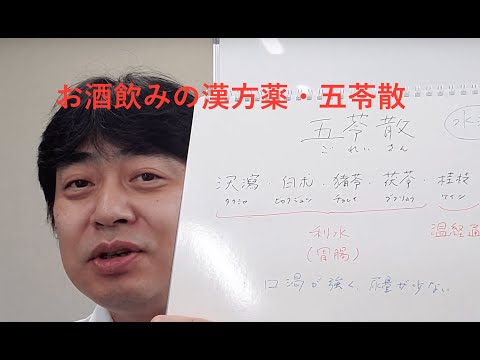 お酒飲みの漢方薬・五苓散
五苓散
水
ごれいさん
沢瀉・白朮・猪苓・茯苓・桂枝
タクシャ ビャクジュツ チョレイ ブクリョウ ケイシ
利水 温経通
(胃腸)
口渇が強く、尿量が少ない